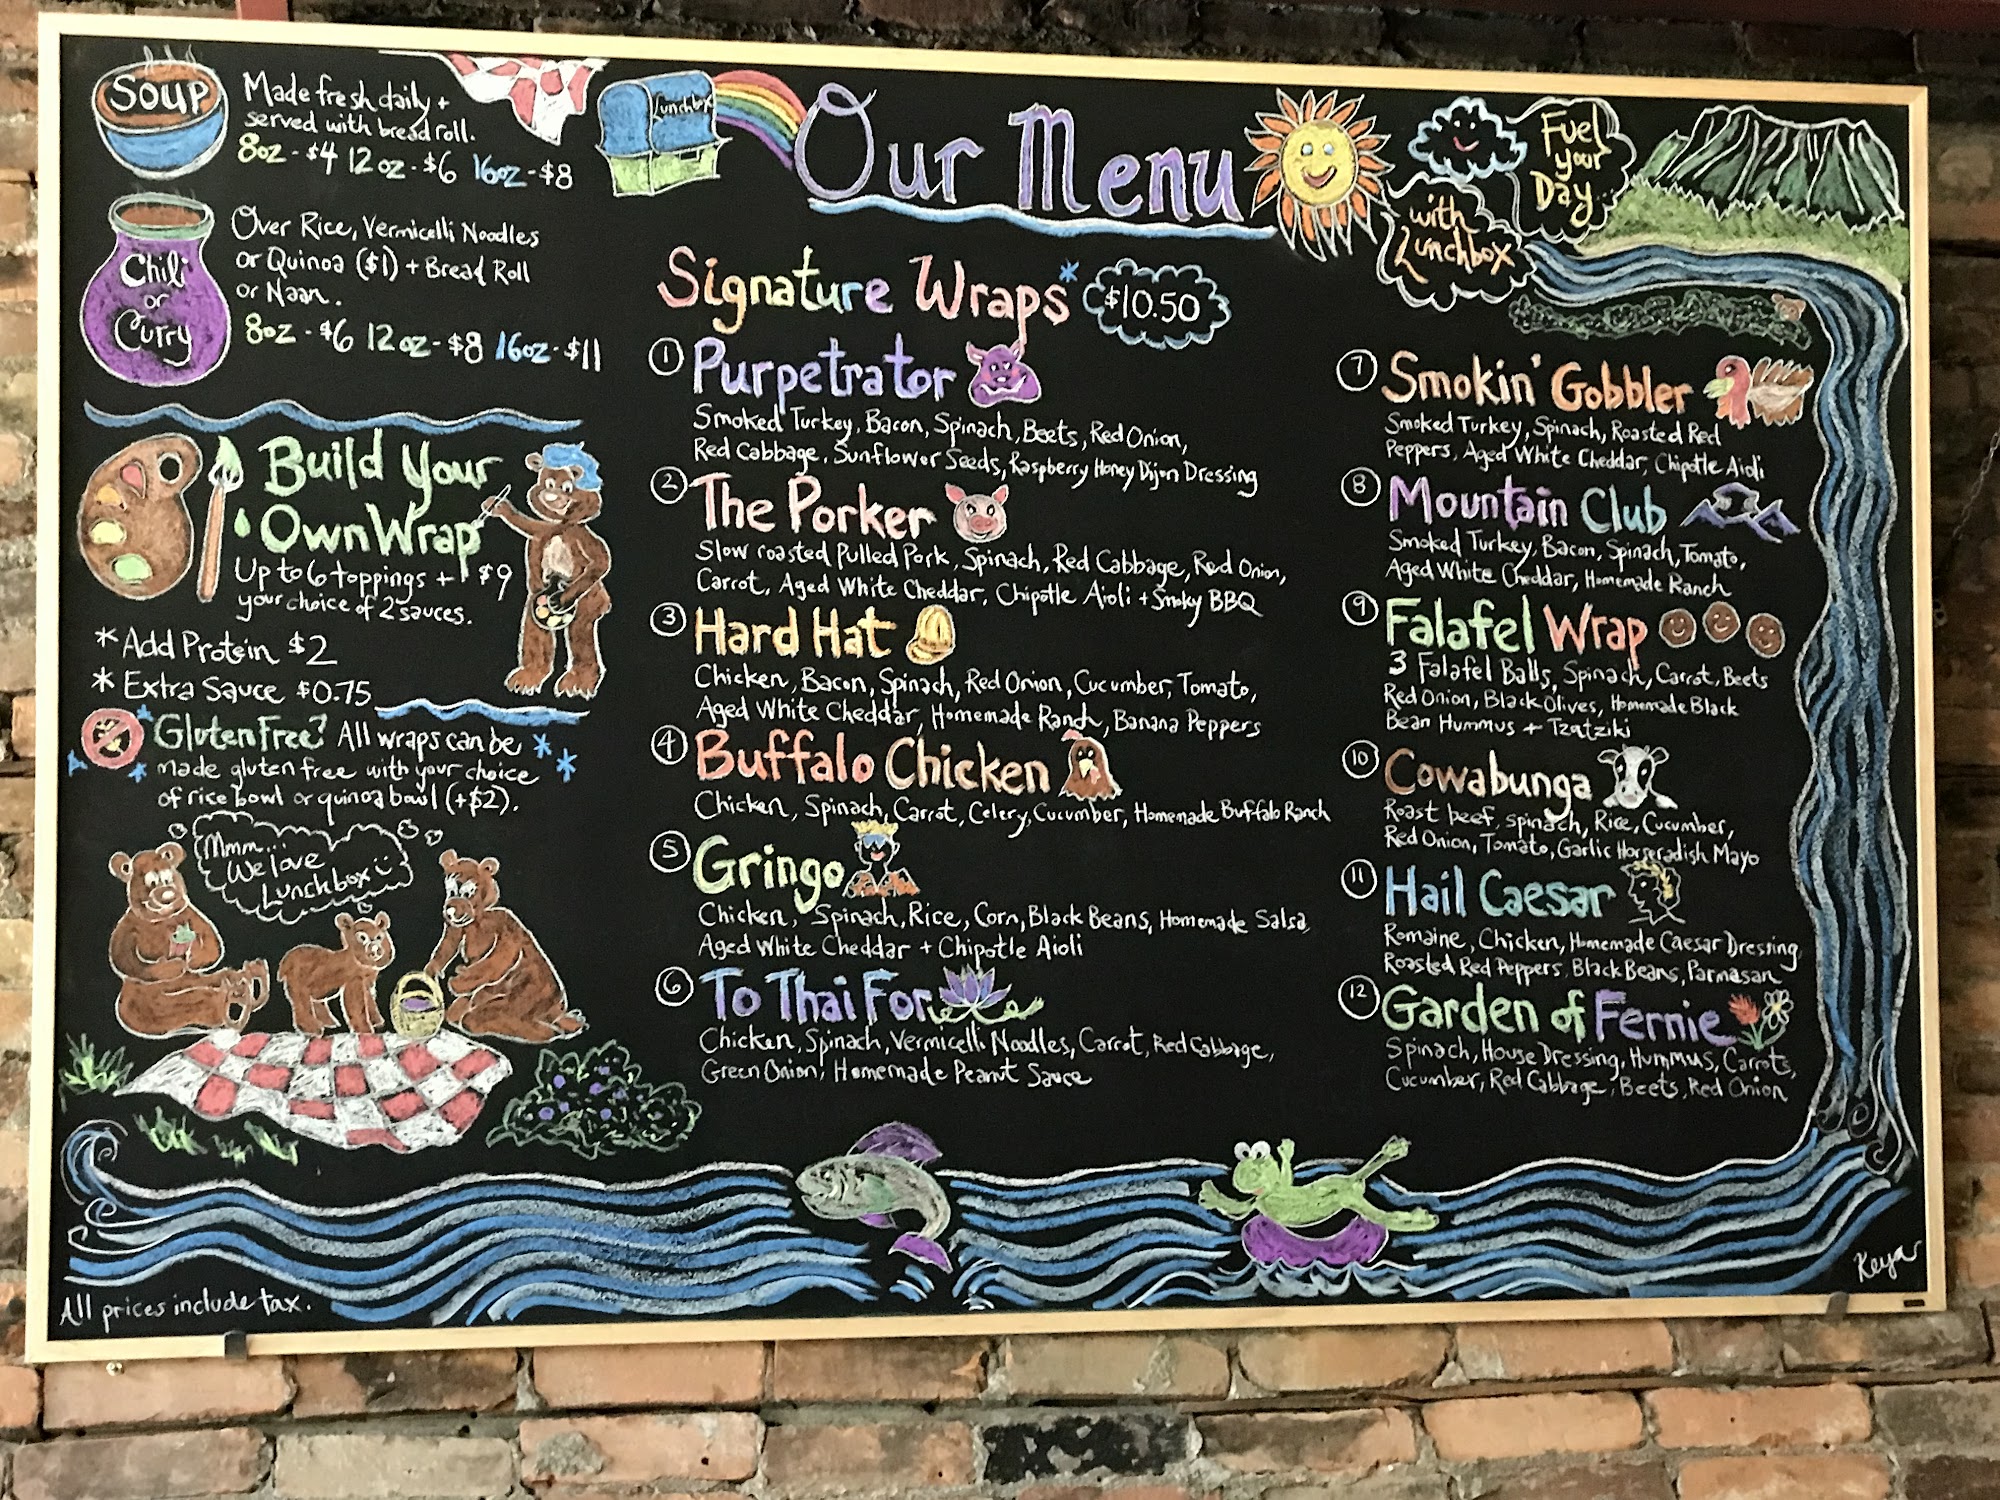 Soup
Made fresh daily +
served with bread roll.
8oz - $4 12oz - $6 16oz - $8
Chili
or
Curry
Over Rice, Vermicelli Noodles
or Quinoa ($1) + Bread Roll
or Naan.
8oz - $6 12oz - $8 16oz - $11
Build Your
Own Wrap
Up to 6 toppings + $9
your choice of 2 sauces.
* Add Protein $2
* Extra Sauce $0.75
Gluten Free? All wraps can be
made gluten free with your choice
of rice bowl or quinoa bowl (+$2).
Mmm...
We love
Lunchbox
All prices include tax.
Lunchbox
Our Menu
Fuel
your
Day
with
Lunchbox
Signature Wraps* $10.50
1 Purpetrator
Smoked Turkey, Bacon, Spinach, Beets, Red Onion,
Red Cabbage, Sunflower Seeds, Raspberry Honey Dijon Dressing
2 The Porker
Slow roasted Pulled Pork, Spinach, Red Cabbage, Red Onion,
Carrot, Aged White Cheddar, Chipotle Aioli + Smoky BBQ
3 Hard Hat
Chicken, Bacon, Spinach, Red Onion, Cucumber, Tomato,
Aged White Cheddar, Homemade Ranch, Banana Peppers
4 Buffalo Chicken
Chicken, Spinach, Carrot, Celery, Cucumber, Homemade Buffalo Ranch
5 Gringo
Chicken, Spinach, Rice, Corn, Black Beans, Homemade Salsa,
Aged White Cheddar + Chipotle Aioli
6 To Thai For
Chicken, Spinach, Vermicelli Noodles, Carrot, Red Cabbage,
Green Onion, Homemade Peanut Sauce
7 Smokin' Gobbler
Smoked Turkey, Spinach, Roasted Red
Peppers, Aged White Cheddar, Chipotle Aioli
8 Mountain Club
Smoked Turkey, Bacon, Spinach, Tomato,
Aged White Cheddar, Homemade Ranch
9 Falafel Wrap
3 Falafel Balls, Spinach, Carrot, Beets
Red Onion, Black Olives, Homemade Black
Bean Hummus + Tzatziki
10 Cowabunga
Roast beef, spinach, Rice, Cucumber,
Red Onion, Tomato, Garlic Horseradish Mayo
11 Hail Caesar
Romaine, Chicken, Homemade Caesar Dressing
Roasted Red Peppers, Black Beans, Parmasan
12 Garden of Fernie
Spinach, House Dressing, Hummus, Carrots,
Cucumber, Red Cabbage, Beets, Red Onion
Keya